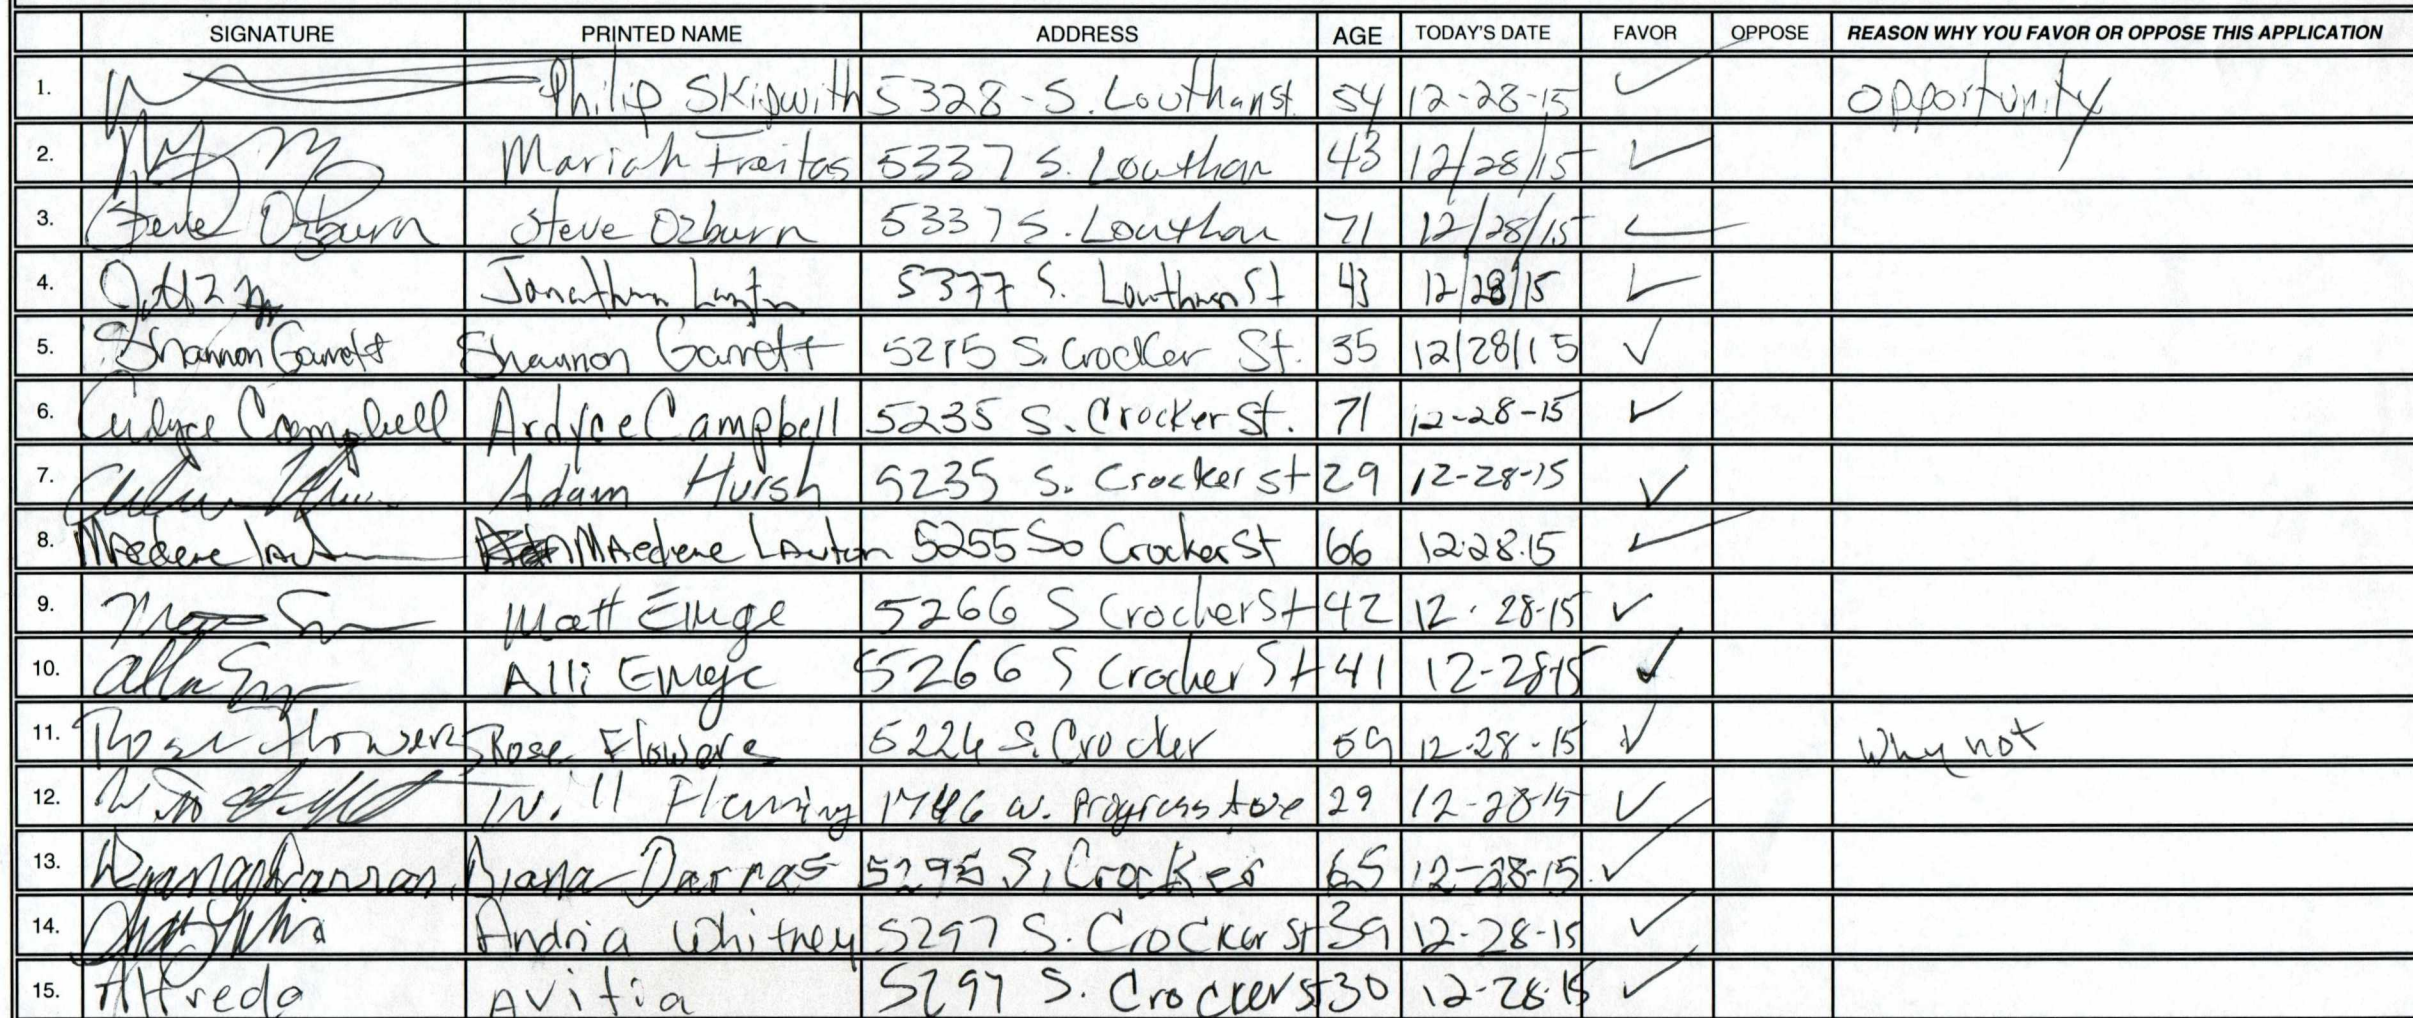 SIGNATURE PRINTED NAME ADDRESS AGE TODAY'S DATE FAVOR OPPOSE REASON WHY YOU FAVOR OR OPPOSE THIS APPLICATION
1. Philip Skipwith 5328 - S. Louthan st. 54 12-28-15 ✓ opportunity
2. Mariah Freitas 5337 S. Louthan 43 12/28/15 ✓
3. Steve Ozburn Steve Ozburn 5337 S. Louthan 71 12/28/15 ✓
4. Jonathan 5377 S. Louthan St 43 12/28/15 ✓
5. Shannon Garrett Shannon Garrett 5275 S. Crocker St. 35 12/28/15 ✓
6. Ardyce Campbell Ardyce Campbell 5235 S. Crocker St. 71 12-28-15 ✓
7. Adam Hursh 5235 S. Crocker St 29 12-28-15 ✓
8. Maedene Lawton Maedene Lawton 5255 So Crocker St 66 12.28.15 ✓
9. Matt Elmge 5266 S Crocker St 42 12-28-15 ✓
10. Alli 5266 S Crocker St 41 12-28-15 ✓
11. Rose Flowers Rose Flowers 5226 S. Crocker 59 12-28-15 ✓ Why not
12. Will Fleming 1746 W. Progress Ave 29 12-28-15 ✓
13. Diana Darras Diana Darras 5295 S. Crocker 65 12-28-15. ✓
14. Andria Whitney 5297 S. Crocker St 39 12-28-15 ✓
15. Alfredo Avitia 5297 S. Crocker St 30 12-28-15 ✓